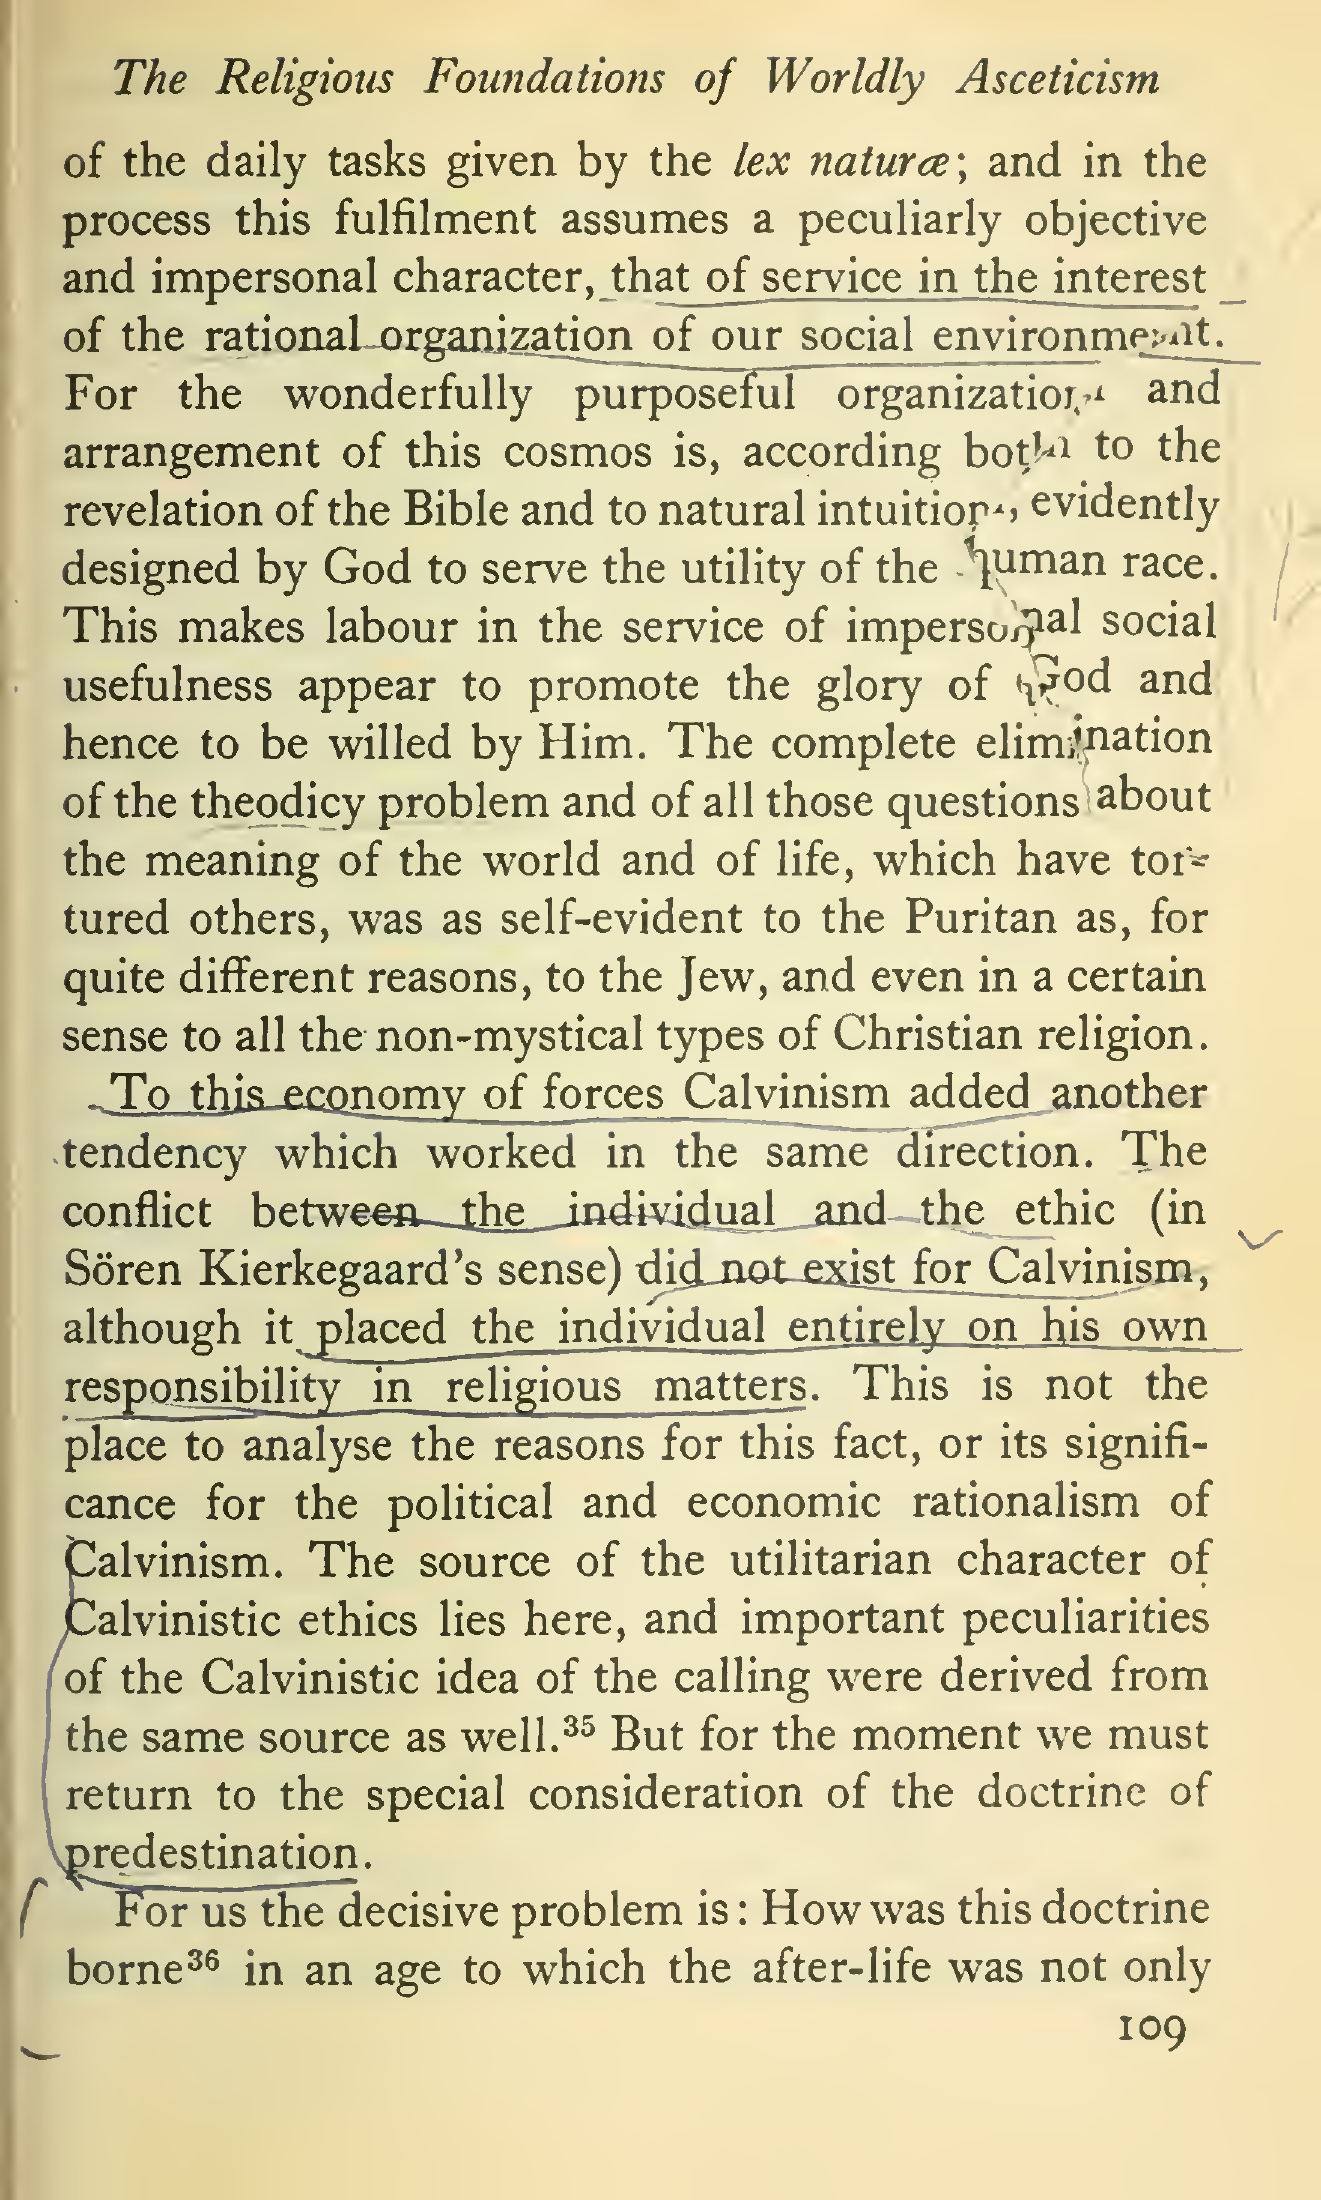 The Religious Foundations of Worldly Asceticism
of the daily tasks given by the lex naturæ; and in the
process this fulfilment assumes a peculiarly objective
and impersonal character, that of service in the interest
of the rational organization of our social environment.
For the wonderfully purposeful organization and
arrangement of this cosmos is, according both to the
revelation of the Bible and to natural intuition, evidently
designed by God to serve the utility of the human race.
This makes labour in the service of impersonal social
usefulness appear to promote the glory of God and
hence to be willed by Him. The complete elimination
of the theodicy problem and of all those questions about
the meaning of the world and of life, which have tor-
tured others, was as self-evident to the Puritan as, for
quite different reasons, to the Jew, and even in a certain
sense to all the non-mystical types of Christian religion.
To this economy of forces Calvinism added another
tendency which worked in the same direction. The
conflict between the individual and the ethic (in
Sören Kierkegaard's sense) did not exist for Calvinism,
although it placed the individual entirely on his own
responsibility in religious matters. This is not the
place to analyse the reasons for this fact, or its signifi-
cance for the political and economic rationalism of
Calvinism. The source of the utilitarian character of
Calvinistic ethics lies here, and important peculiarities
of the Calvinistic idea of the calling were derived from
the same source as well.³⁵ But for the moment we must
return to the special consideration of the doctrine of
predestination.
For us the decisive problem is: How was this doctrine
borne³⁶ in an age to which the after-life was not only
109